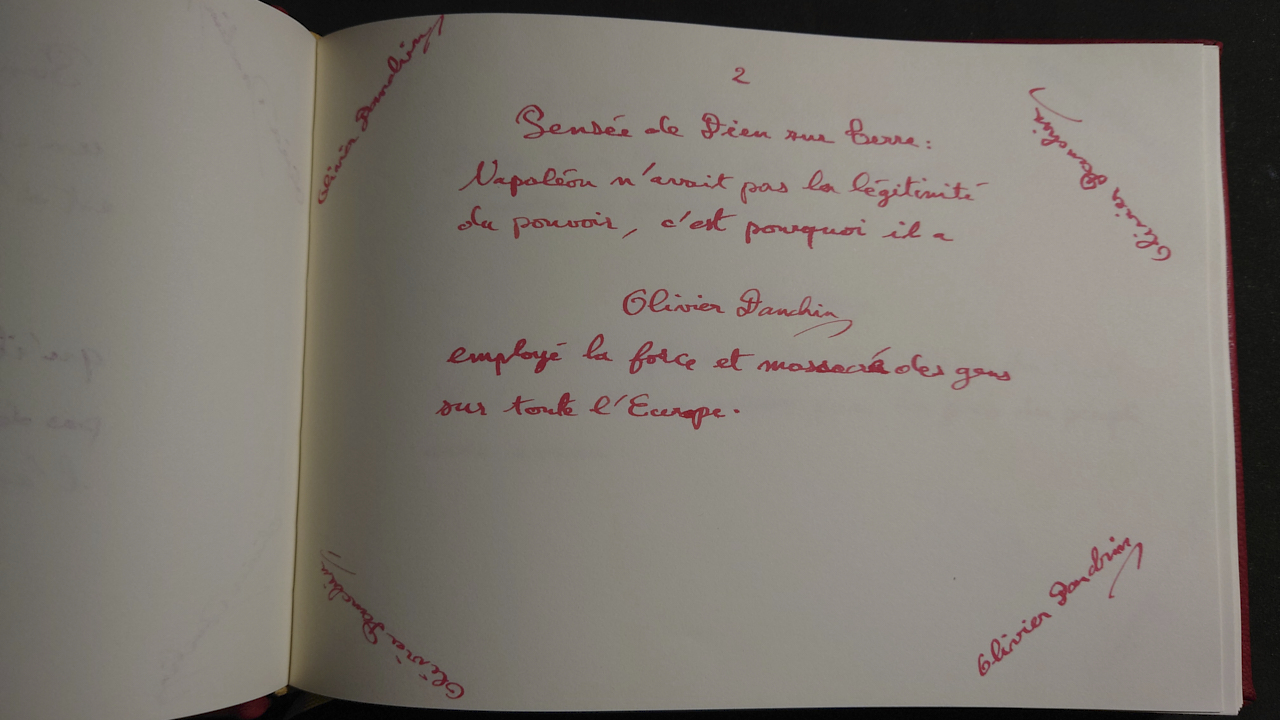 2
Pensée de Dieu sur terre:
Napoléon n'avait pas la légitimité
du pouvoir, c'est pourquoi il a
Olivier Danchin
employé la force et massacré des gens
sur toute l'Europe.
Olivier Danchin
Olivier Danchin
Olivier Danchin
Olivier Danchin